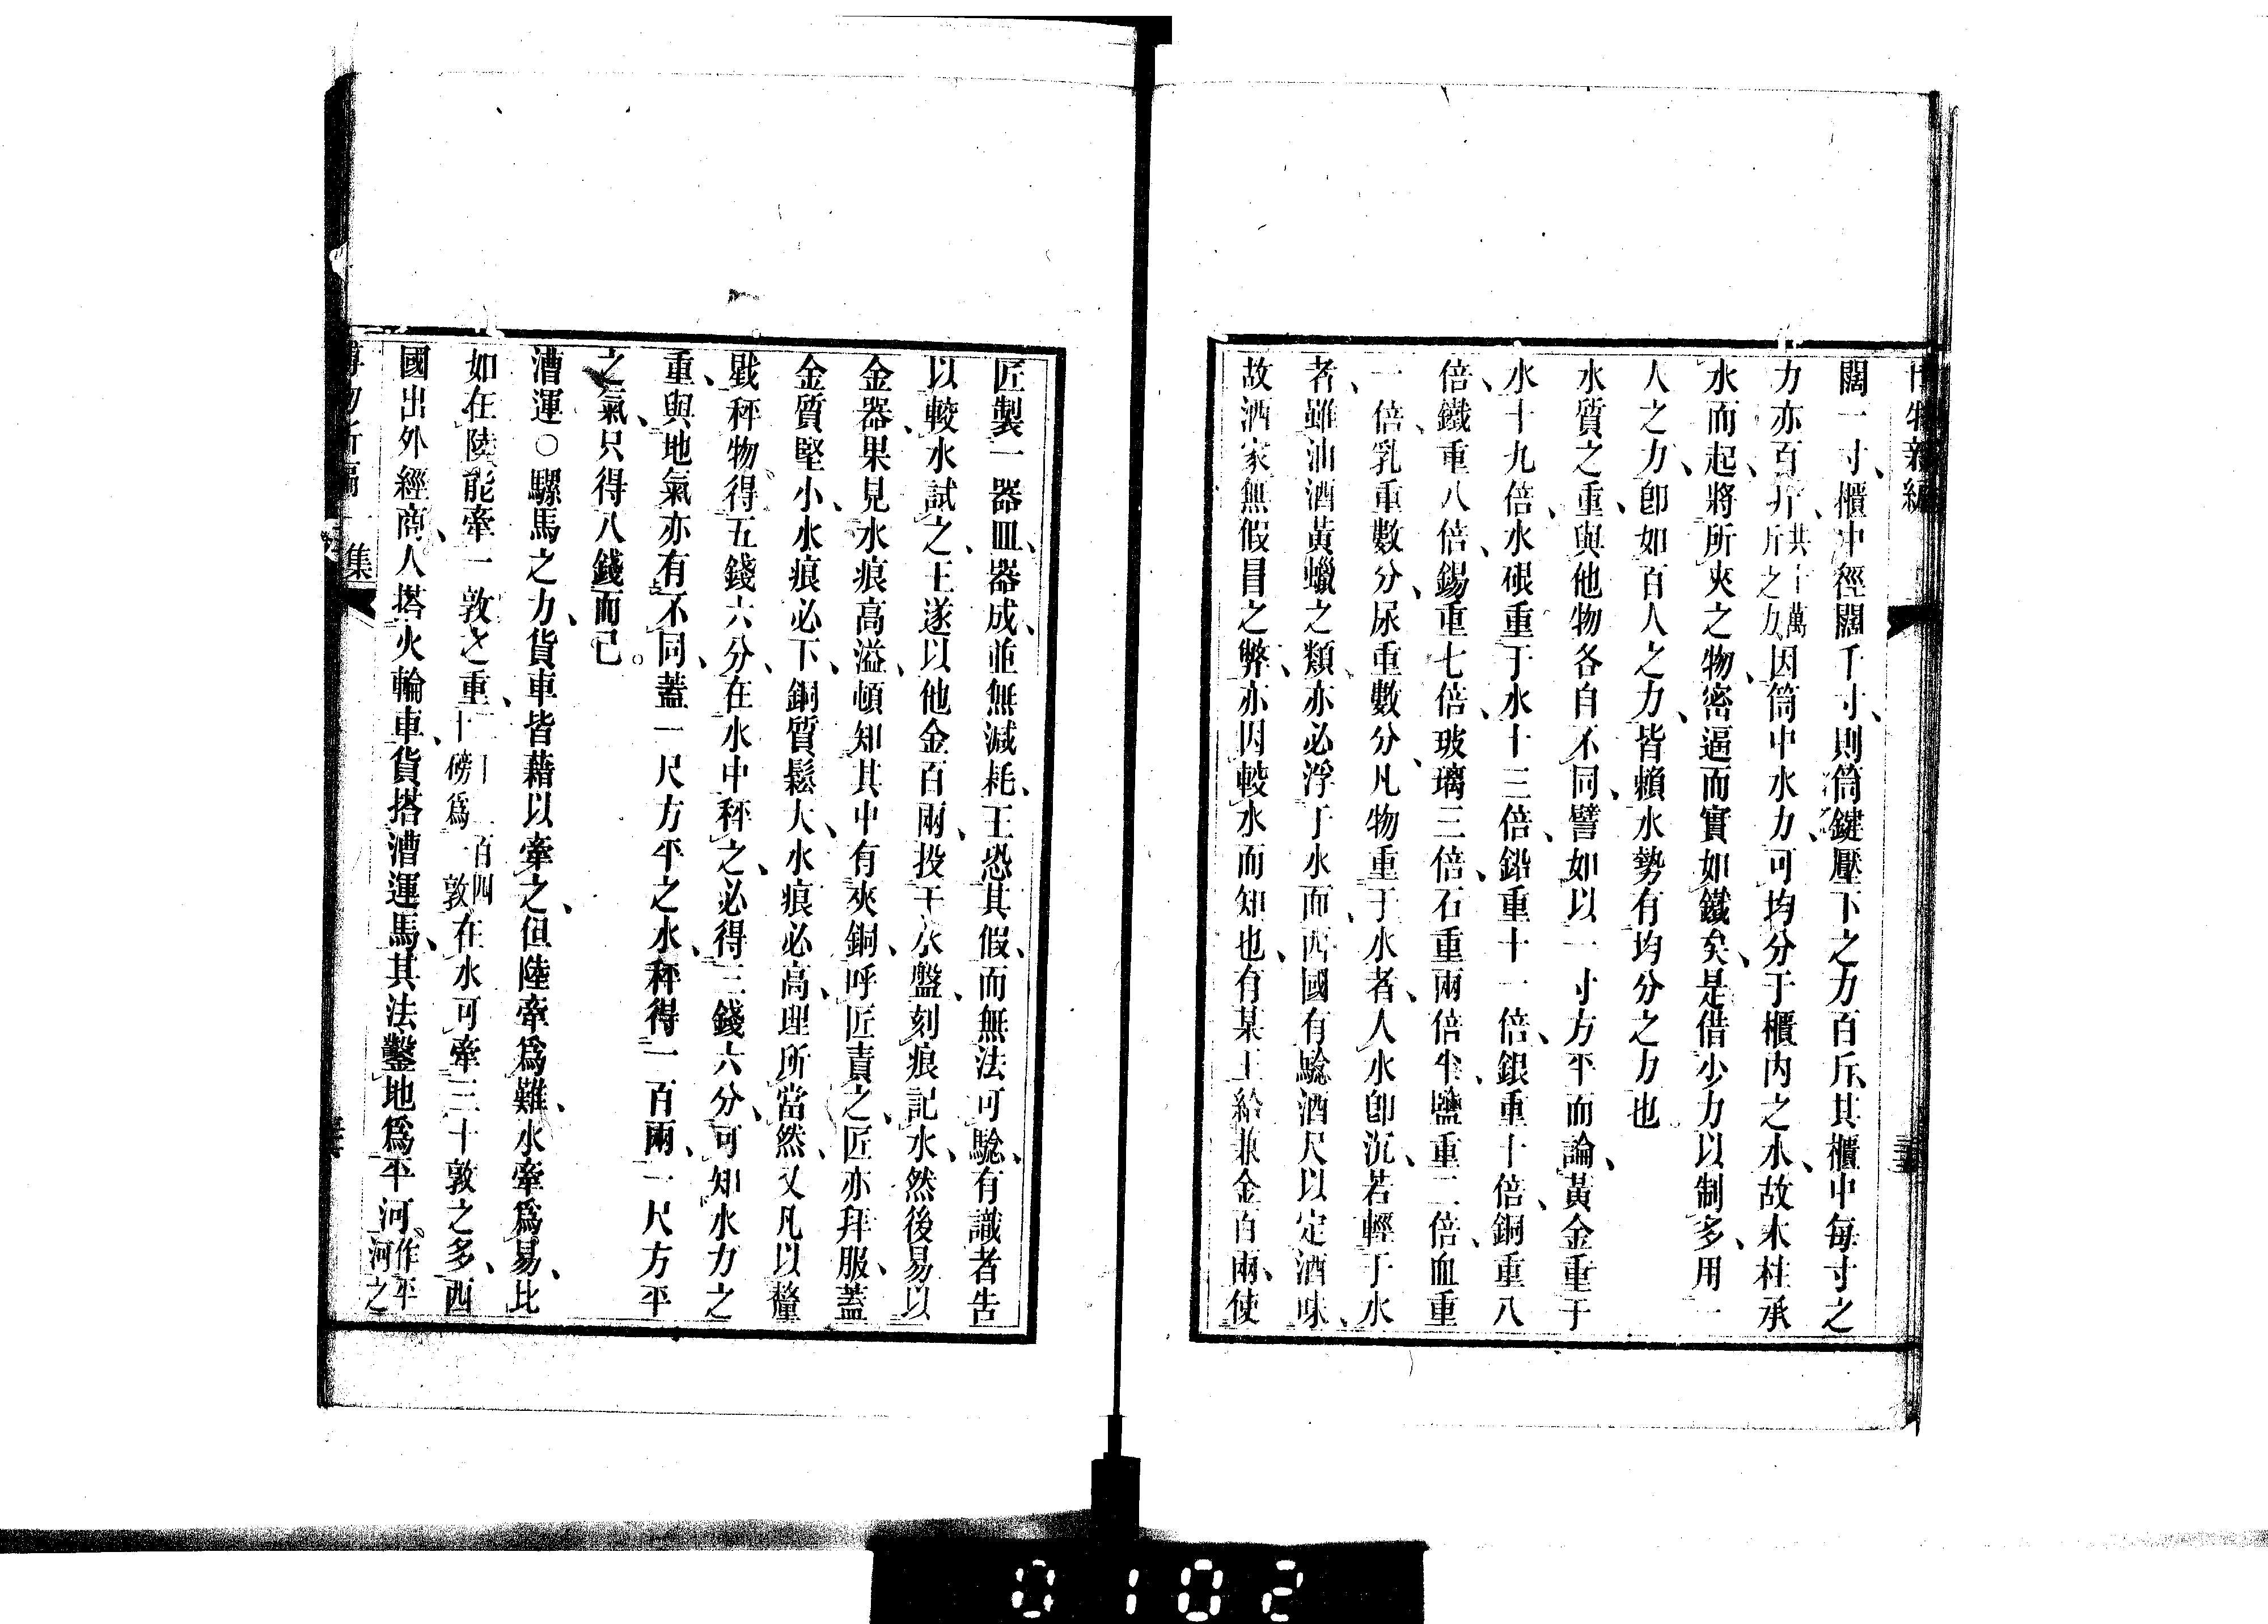 博物新編
闊一寸、櫃中徑闊千寸、則筒鍵壓下之力百斤、其櫃中每寸之
力亦百斤、共十萬斤之力、因筒中水力、可均分于櫃內之水、故木柱承
水而起、將所夾之物、密逼而實如鐵矣、是借少力以制多、用一
人之力、卽如百人之力、皆賴水勢有均分之力也
水質之重、與他物各自不同、譬如以一寸方平而論、黃金重于
水十九倍、水硍重于水十三倍、鉛重十一倍、銀重十倍、銅重八
倍、鐵重八倍、錫重七倍、玻璃三倍、石重兩倍半、鹽重二倍、血重
一倍、乳重數分、尿重數分、凡物重于水者、入水卽沉、若輕于水
者、雖油酒黃蠟之類、亦必浮于水面、西國有驗酒尺以定酒味、
故酒家無假冒之弊、亦因較水而知也、有某王給兼金百兩、使
匠製一器皿、器成、並無減耗、王恐其假、而無法可驗、有識者告
以較水試之、王遂以他金百兩、投于水盤、刻痕記水、然後易以
金器、果見水痕高溢、頓知其中有夾銅、呼匠責之、匠亦拜服、蓋
金質堅小、水痕必下、銅質鬆大、水痕必高、理所當然、又凡以釐
戥秤物、得五錢六分、在水中秤之、必得三錢六分、可知水力之
重、與地氣亦有不同、蓋一尺方平之水、秤得一百兩、一尺方平
之氣、只得八錢而已。
漕運○騾馬之力、貨車皆藉以牽之、但陸牽爲難、水牽爲易、比
如在陸能牽一敦之重、一百四十磅爲一敦在水可牽三十敦之多、西
國出外經商、人塔火輪車、貨搭漕運馬、其法鑿地爲平河。作平河之
博物新編 一集
0102